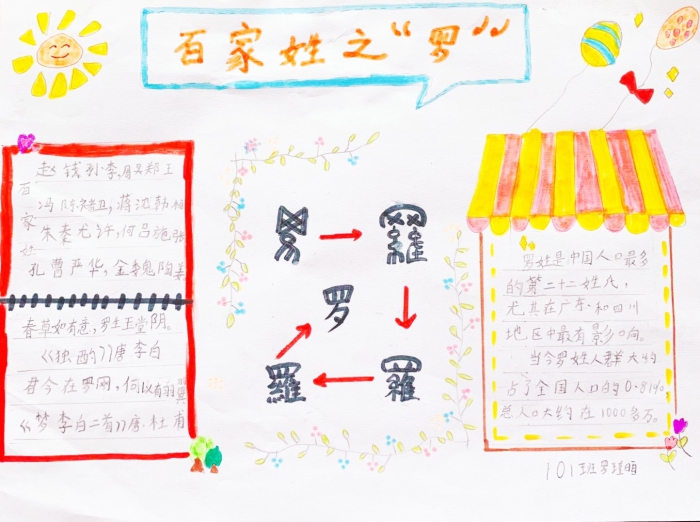 百家姓之“罗”
赵钱孙李,周吴郑王
百家姓
冯陈褚卫,蒋沈韩杨
朱秦尤许,何吕施张
孔曹严华,金魏陶姜
春草如有意,罗生玉堂阴。
《独酌》唐李白
君今在罗网,何以有羽翼
《梦李白二首》唐·杜甫
羅
罗
羅
羅
罗姓是中国人口最多
的第二十二姓氏,
尤其在广东和四川
地区中最有影响。
当今罗姓人群大约
占了全国人口的0.81%
总人口大约在1000多万。
101班罗